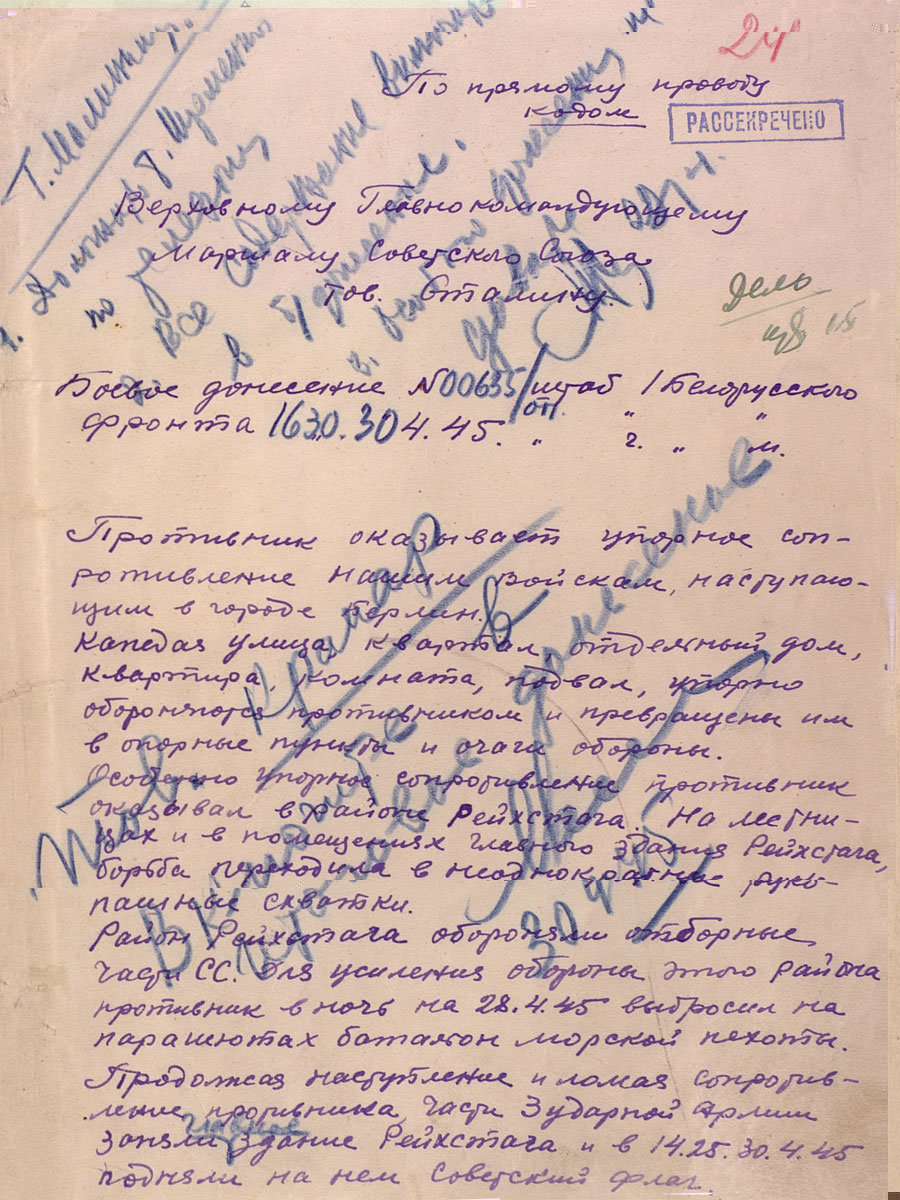 24
По прямому проводу
кодом
РАССЕКРЕЧЕНО
Верховному Главнокомандующему
Маршалу Советского Союза
тов. Сталину.
Дело
Боевое донесение №00635/оп. штаб 1 Белорусского
фронта 1630. 30 4. 45. " ч. " м.
Противник оказывает упорное соп-
ротивление нашим войскам, наступаю-
щим в городе Берлин.
Каждая улица, квартал, отдельный дом,
квартира, комната, подвал, упорно
обороняются противником и превращены им
в опорные пункты и очаги обороны.
Особенно упорное сопротивление противник
оказывал в районе Рейхстага. На лестни-
цах и в помещениях главного здания Рейхстага,
борьба переходила в неоднократные руко-
пашные схватки.
Район Рейхстага обороняли отборные
части СС. Для усиления обороны этого района
противник в ночь на 28.4.45 выбросил на
парашютах батальон морской пехоты.
Продолжая наступление и ломая сопротив-
ление противника части 3 ударной Армии
главное
заняли здание Рейхстага и в 14.25. 30.4.45
подняли на нем Советский флаг.
Т. Малинину.
по телефону
Все содержание
в донесение.
Тов. Крамар
Включите
итоговое донесение
30.4.45